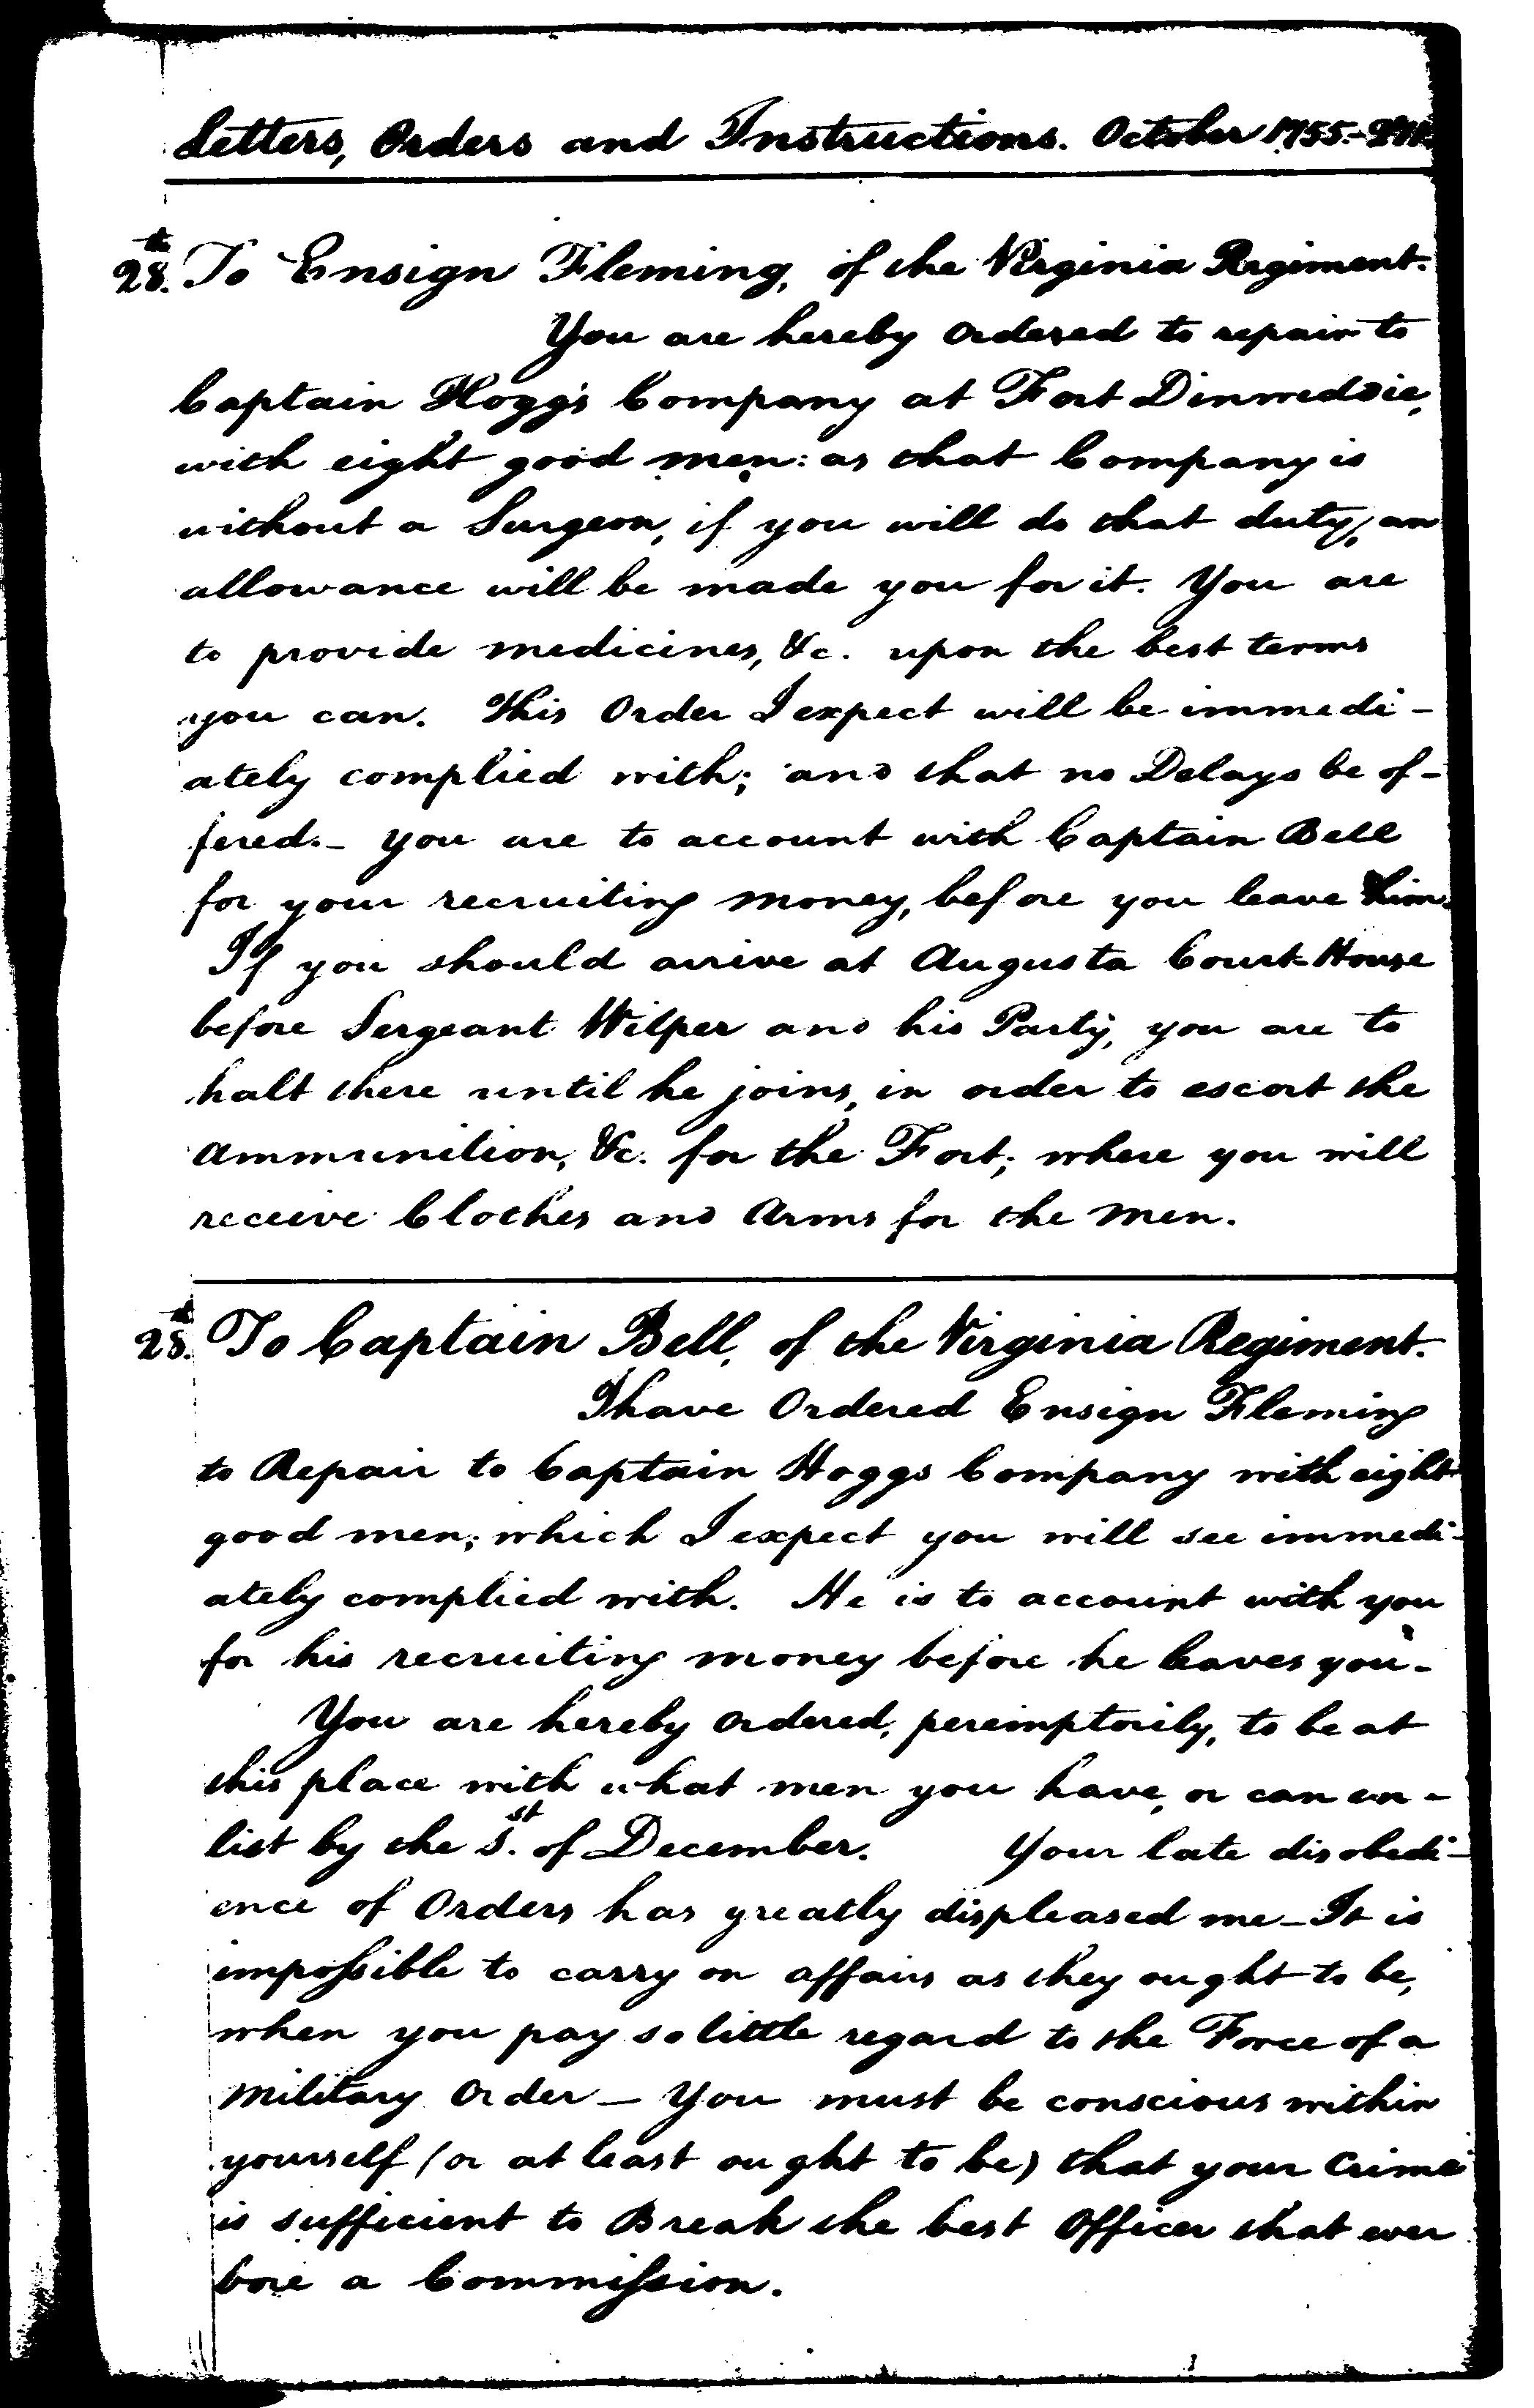 Letters, Orders and Instructions. October 1755.
28.th To Ensign Fleming, of the Virginia Regiment.
You are hereby ordered to repair to
Captain Hogg's Company at Fort Dinwiddie,
with eight good men: as that Company is
without a Surgeon, if you will do that duty, an
allowance will be made you for it. You are
to provide medicines, &c. upon the best terms
you can. This Order I expect will be immedi-
ately complied with; and that no Delays be of-
fered. - You are to account with Captain Bell
for your recruiting money, before you leave him.
If you should arrive at Augusta Court-House
before Sergeant Wilper and his Party, you are to
halt there until he joins, in order to escort the
Ammunition, &c. for the Fort; where you will
receive Clothes and Arms for the men.
28.th To Captain Bell, of the Virginia Regiment.
I have Ordered Ensign Fleming
to Repair to Captain Hoggs Company with eight
good men; which I expect you will see immedi-
ately complied with. He is to account with you
for his recruiting money before he leaves you.
You are hereby ordered, peremptorily, to be at
this place with what men you have, or can en-
list by the 1.st of December. Your late disobedi-
ence of Orders has greatly displeased me - It is
impossible to carry on affairs as they ought to be,
when you pay so little regard to the Force of a
Military Order - You must be conscious within
yourself (or at least ought to be) that your Crime
is sufficient to Break the best Officer that ever
bore a Commission.